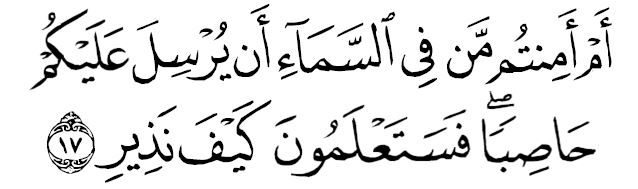 أَمْ أَمِنتُم مَّن فِى ٱلسَّمَآءِ أَن يُرْسِلَ عَلَيْكُمْ
حَاصِبًا ۖ فَسَتَعْلَمُونَ كَيْفَ نَذِيرِ ١٧